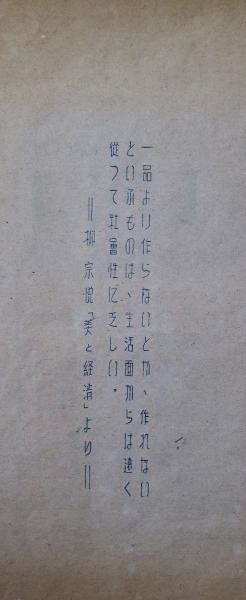 一品より作らないとか、作れない
といふものは、生活面からは遠く
従つて社會性に乏しい。
＝柳宗悦「美と経済」より＝